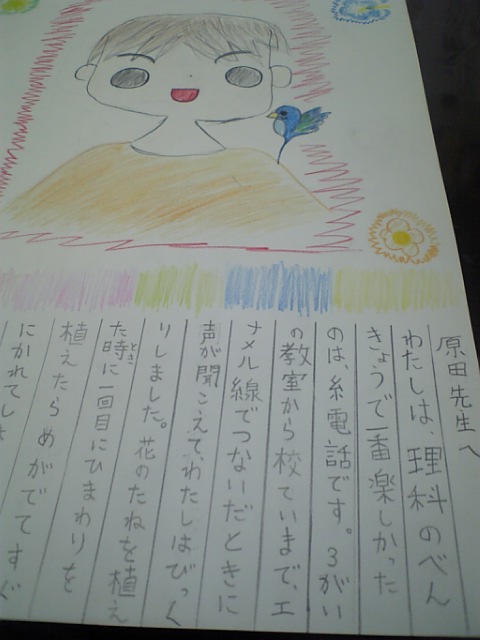 原田先生へ
わたしは、理科のべん
きょうで一番楽しかった
のは、糸電話です。3がい
の教室から校ていまで、エ
ナメル線でつないだときに
声が聞こえて、わたしはびっく
りしました。花のたねを植え
た時に一回目にひまわりを
とき
植えたらめがでてすぐ
にかれてしま